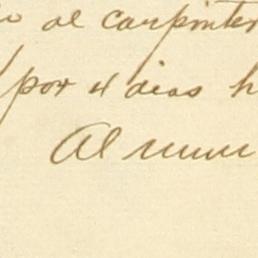 al carpinter
por 4 dias h
Al mun